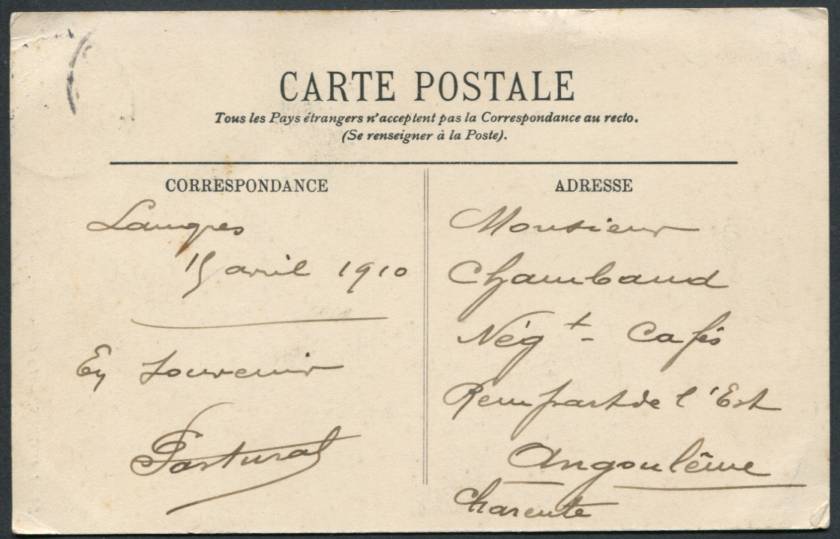 CARTE POSTALE
Tous les Pays étrangers n'acceptent pas la Correspondance au recto.
(Se renseigner à la Poste).
CORRESPONDANCE
Langres
15 avril 1910
En souvenir
Pastural
ADRESSE
Monsieur
Chambaud
Nég^t - Cafés
Rempart de l'Est
Angoulême
Charente